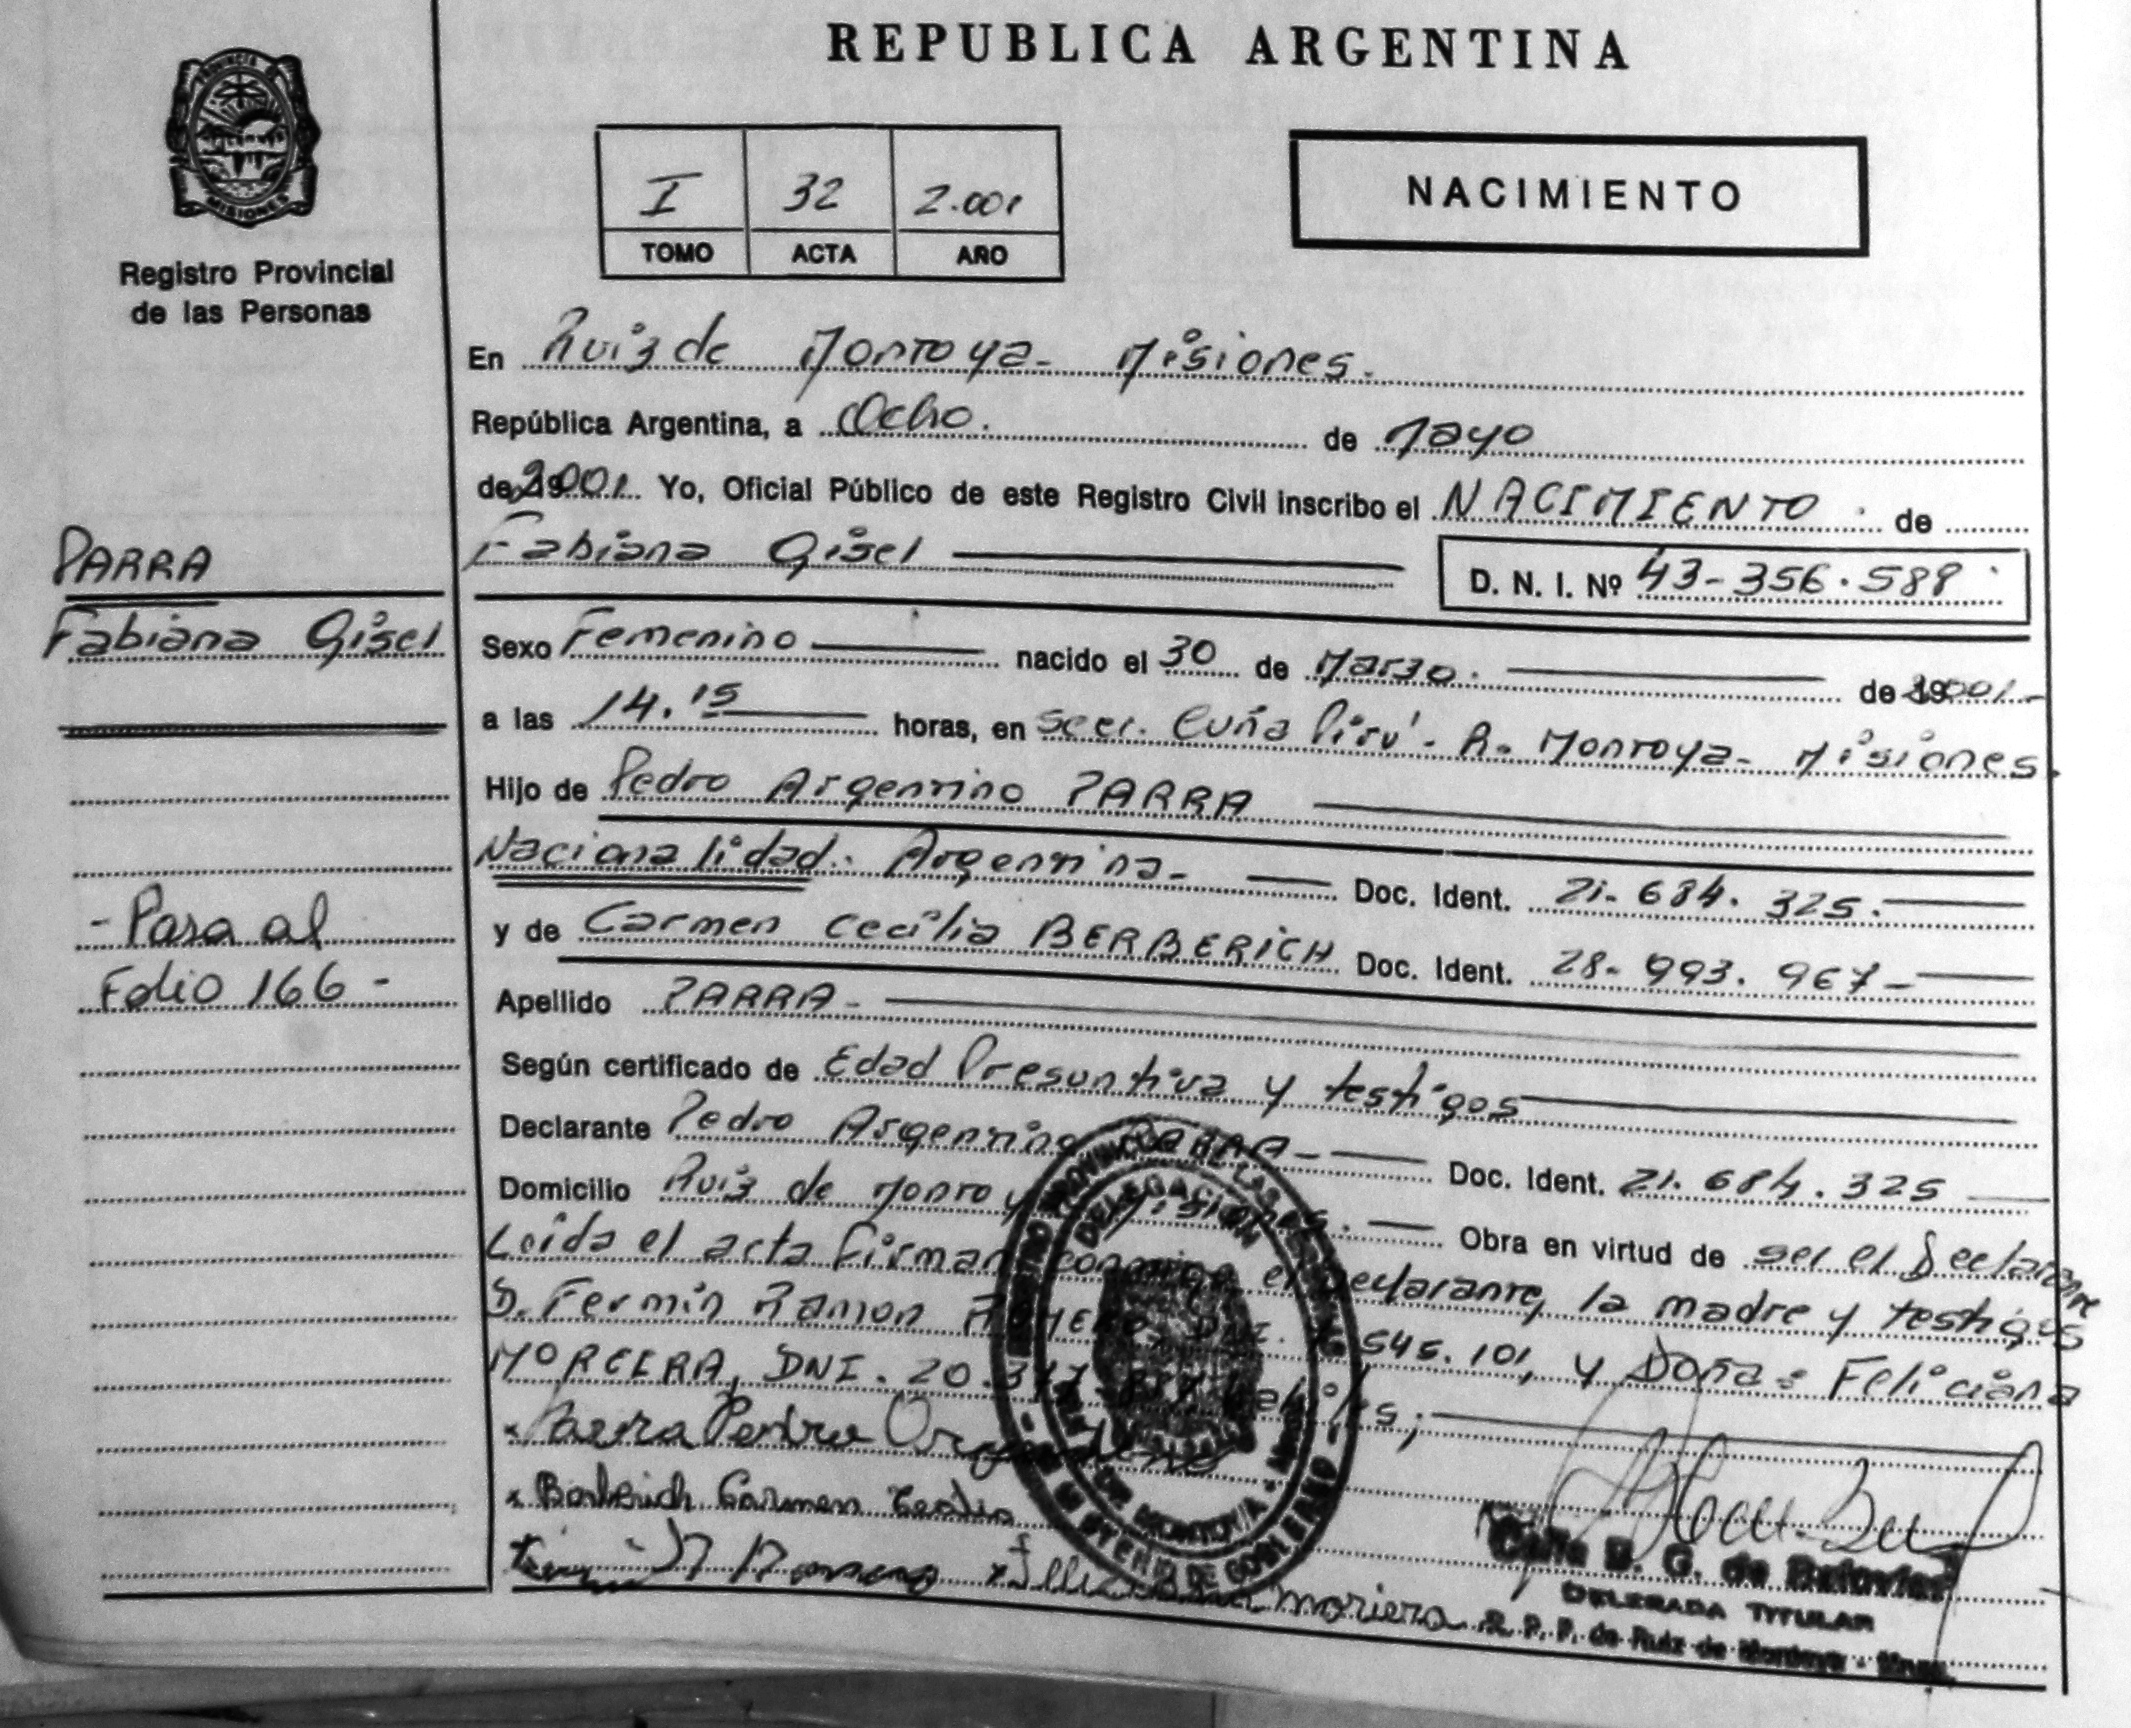 REPUBLICA ARGENTINA
PROVINCIA DE
MISIONES
Registro Provincial
de las Personas
I 32 2.001
TOMO ACTA AÑO
NACIMIENTO
En Ruiz de Montoya- Misiones.
República Argentina, a Ocho. de Mayo
de 2001. Yo, Oficial Público de este Registro Civil inscribo el NACIMIENTO de
Fabiana Gisel
D. N. I. Nº 43-356.588
PARRA
Fabiana Gisel
Sexo Femenino nacido el 30 de Marzo. de 2001.-
a las 14.15 horas, en Secc. Cuña Pirú- R. Montoya- Misiones.
Hijo de Pedro Argentino PARRA
Nacionalidad. Argentina- Doc. Ident. 21.684.325.
y de Carmen Cecilia BERBERICH Doc. Ident. 28.993.967-
- Pasa al
Folio 166 -
Apellido PARRA-
Según certificado de Edad Presuntiva y testigos
Declarante Pedro Argentino PARRA- Doc. Ident. 21.684.325
Domicilio Ruiz de Montoya Obra en virtud de ser el Declarante
Leída el acta Firman conmigo el Declarante, la madre y testigos
D. Fermín Ramon DNI. 545.101, y Doña: Feliciana
MORCERA, DNI. 20.
Parra Pedro
Berberich Carmen Cecilia
Moriera
DELEGADA TITULAR
R. P. P. de Ruiz de Montoya - Mnes.
DELEGACION
DE MONTOYA
MINISTERIO DE GOBIERNO